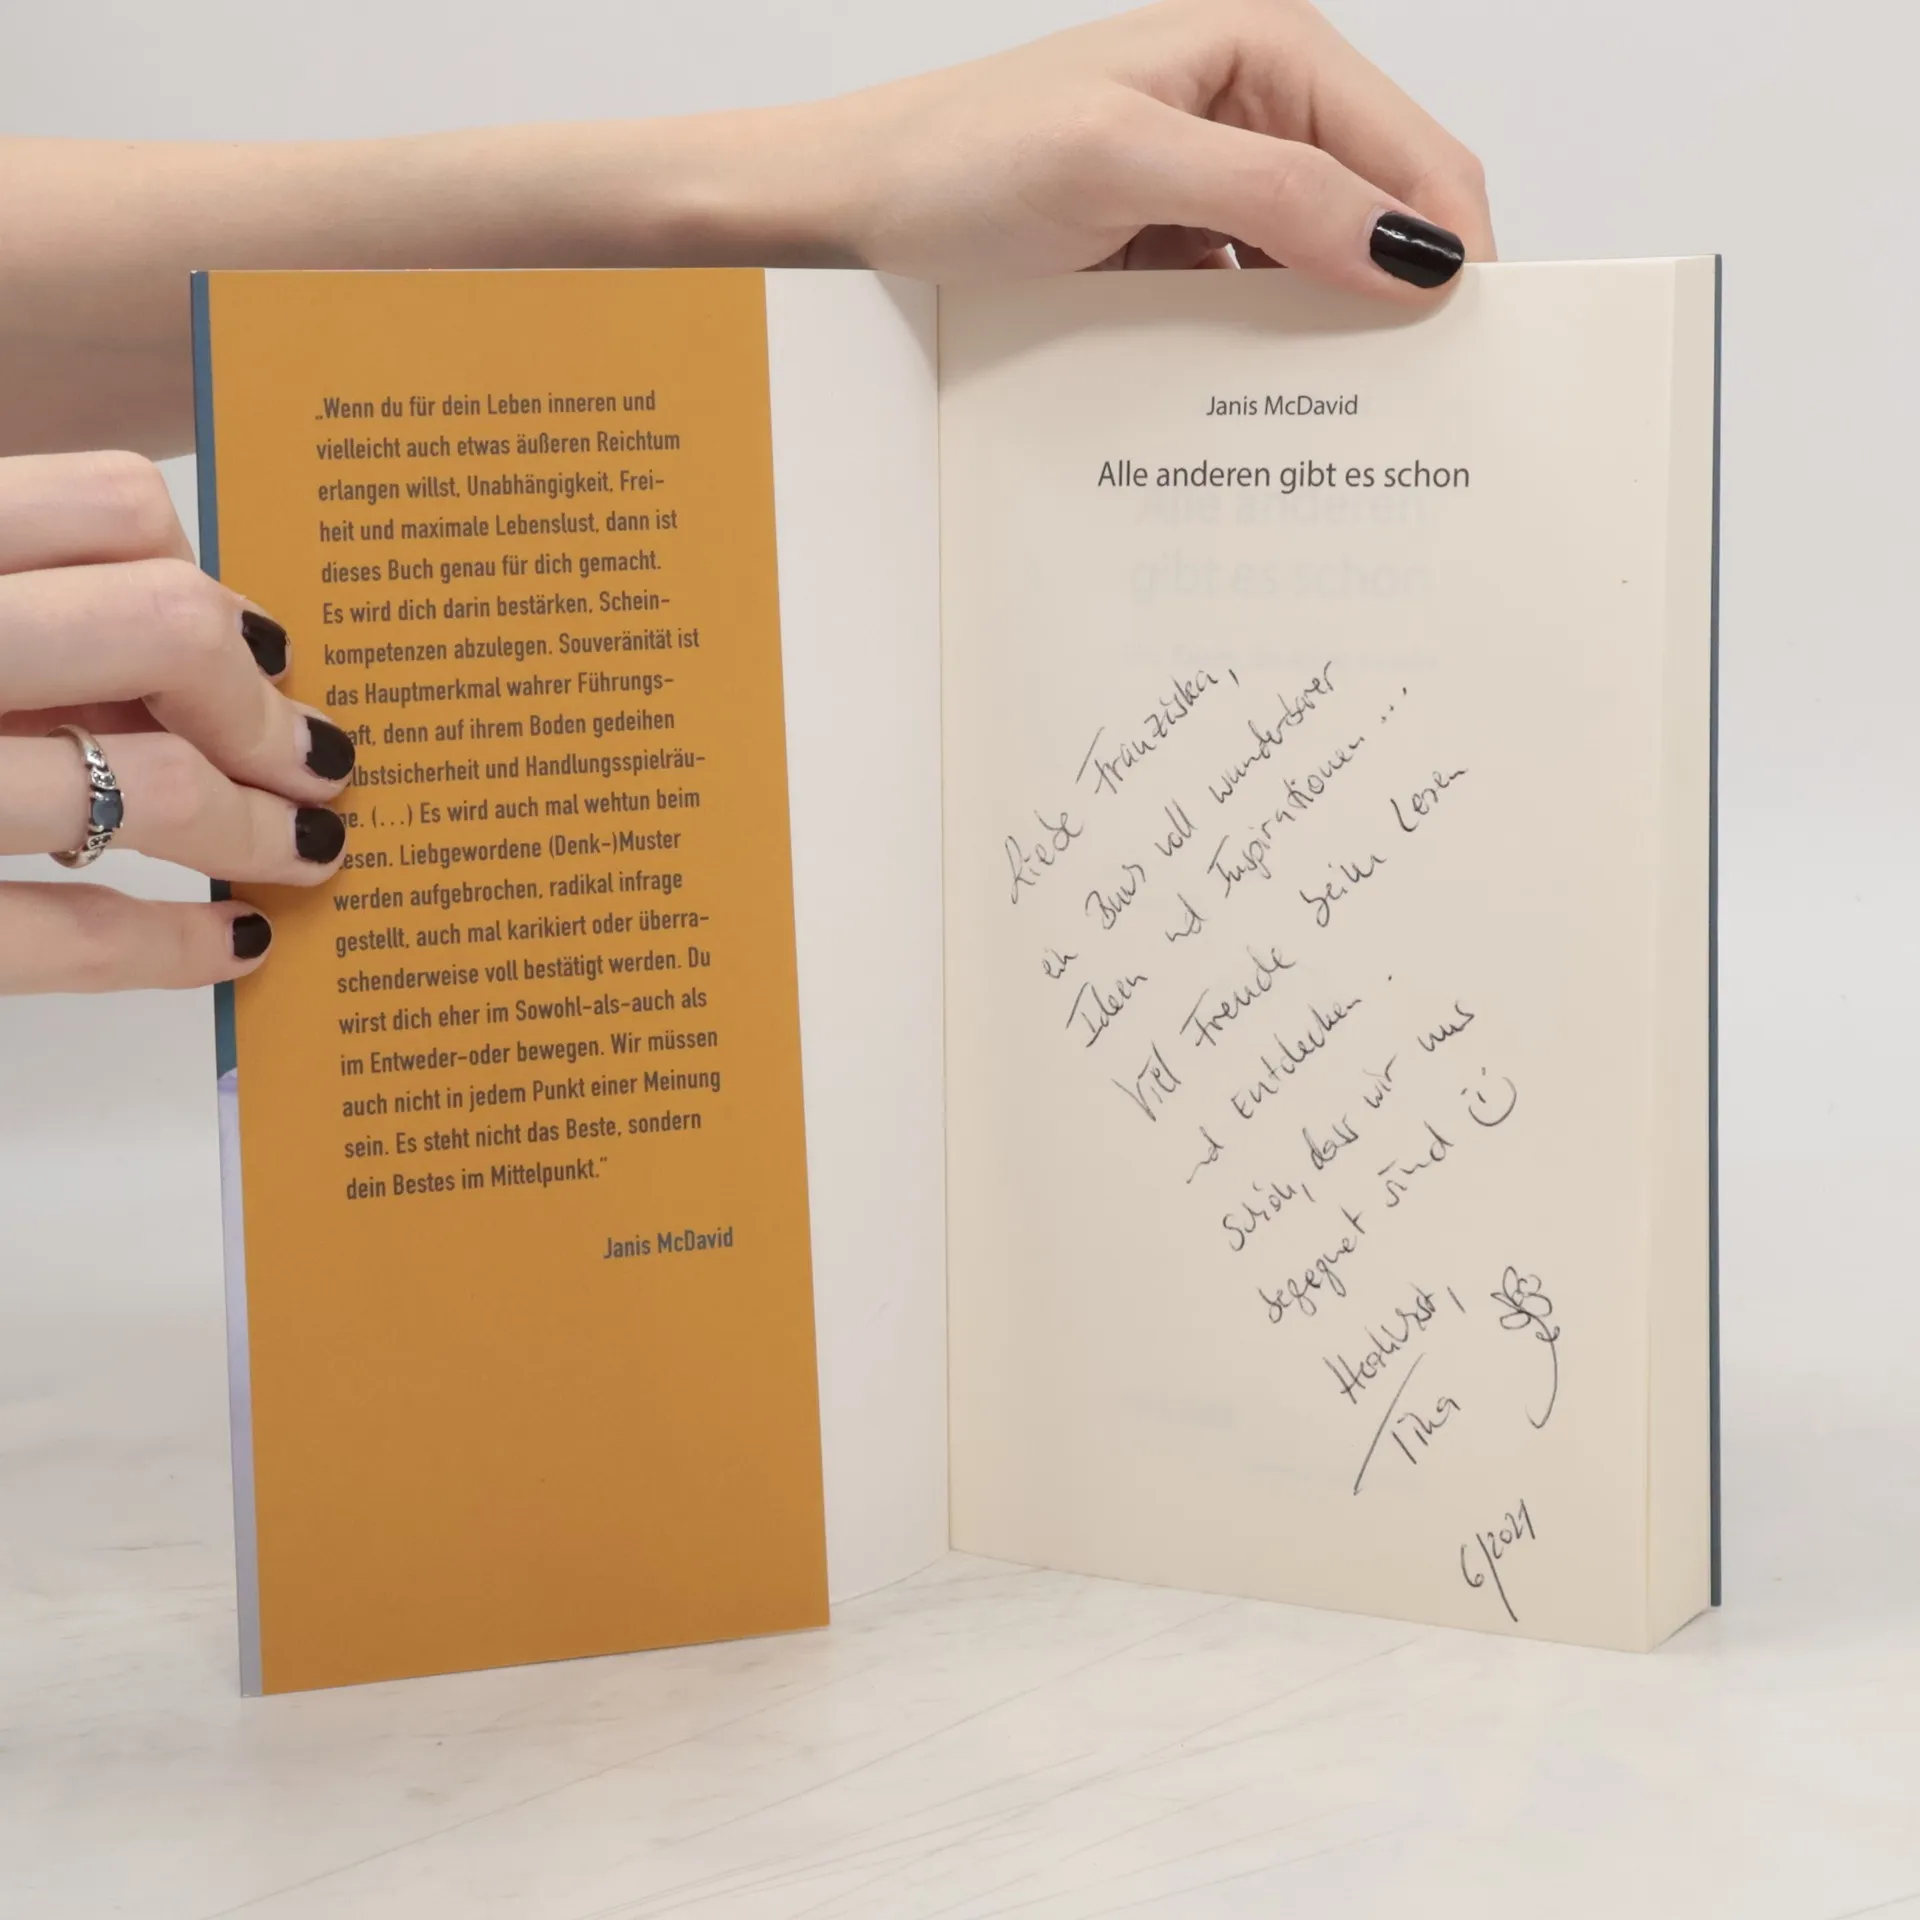 „Wenn du für dein Leben inneren und
vielleicht auch etwas äußeren Reichtum
erlangen willst, Unabhängigkeit, Frei-
heit und maximale Lebenslust, dann ist
dieses Buch genau für dich gemacht.
Es wird dich darin bestärken, Schein-
kompetenzen abzulegen. Souveränität ist
das Hauptmerkmal wahrer Führungs-
aft, denn auf ihrem Boden gedeihen
lbstsicherheit und Handlungsspielräu-
e. (...) Es wird auch mal wehtun beim
esen. Liebgewordene (Denk-)Muster
werden aufgebrochen, radikal infrage
gestellt, auch mal karikiert oder überra-
schenderweise voll bestätigt werden. Du
wirst dich eher im Sowohl-als-auch als
im Entweder-oder bewegen. Wir müssen
auch nicht in jedem Punkt einer Meinung
sein. Es steht nicht das Beste, sondern
dein Bestes im Mittelpunkt.“
Janis McDavid
Janis McDavid
Alle anderen gibt es schon
Liebe Franziska,
ein voll wunderbarer
Ideen und Inspirationen...
Viel Freude beim Lesen
und Entdecken.
Schön, dass wir uns
begegnet sind
Herzlichst,
Tina
6/2021